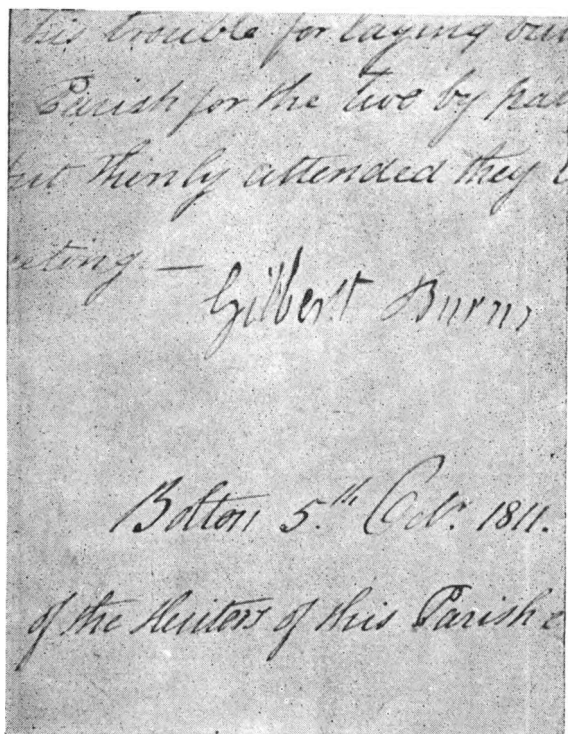 his trouble for laying out
Parish for the two by pa
but thinly attended they
eeting —
Gilbert Burns
Bolton 5.th Octr. 1811.
of the Heritors of this Parish